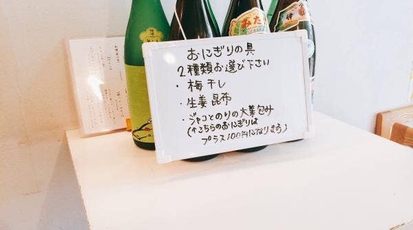 おにぎりの具
2種類お選び下さい
・梅干し
・生姜昆布
・ジャコとのりの大葉包み
(※こちらのおにぎりは
プラス100円になります)